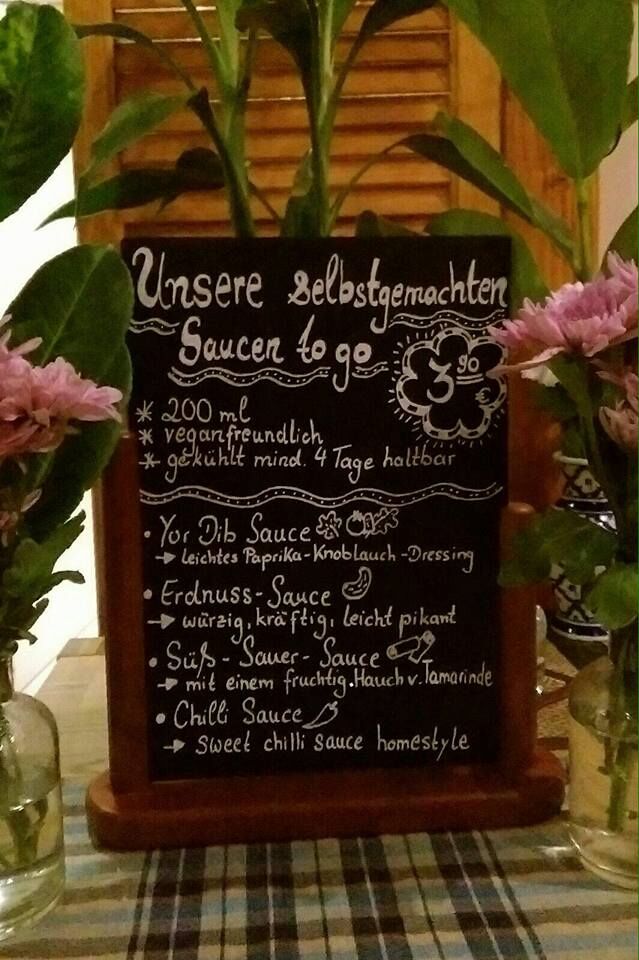 Unsere selbstgemachten
Saucen to go
3,90 €
* 200 ml
* veganfreundlich
* gekühlt mind. 4 Tage haltbar
• Yor Dib Sauce
→ leichtes Paprika-Knoblauch-Dressing
• Erdnuss-Sauce
→ würzig, kräftig, leicht pikant
• Süß-Sauer-Sauce
→ mit einem fruchtig. Hauch v. Tamarinde
• Chilli Sauce
→ sweet chilli sauce homestyle